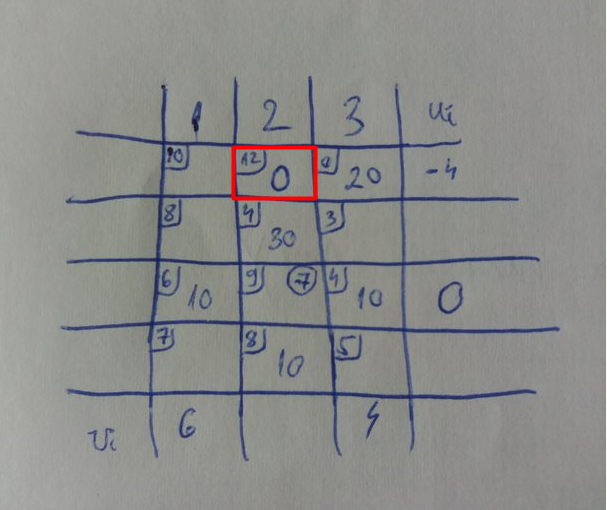 1 2 3 ui
10 12 0 20 -4
8 4 30 3
6 10 9 -7 4 10 0
7 8 10 5
vi 6 4